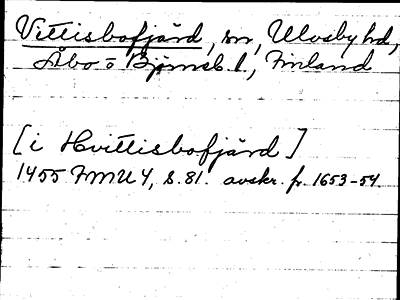 Vittisbofjärd, sn, Ulvsby hd,
Åbo o Björneb. l., Finland
[i Hvittisbofjärd]
1455 FMU 4, s. 81. avskr. fr. 1653-54.